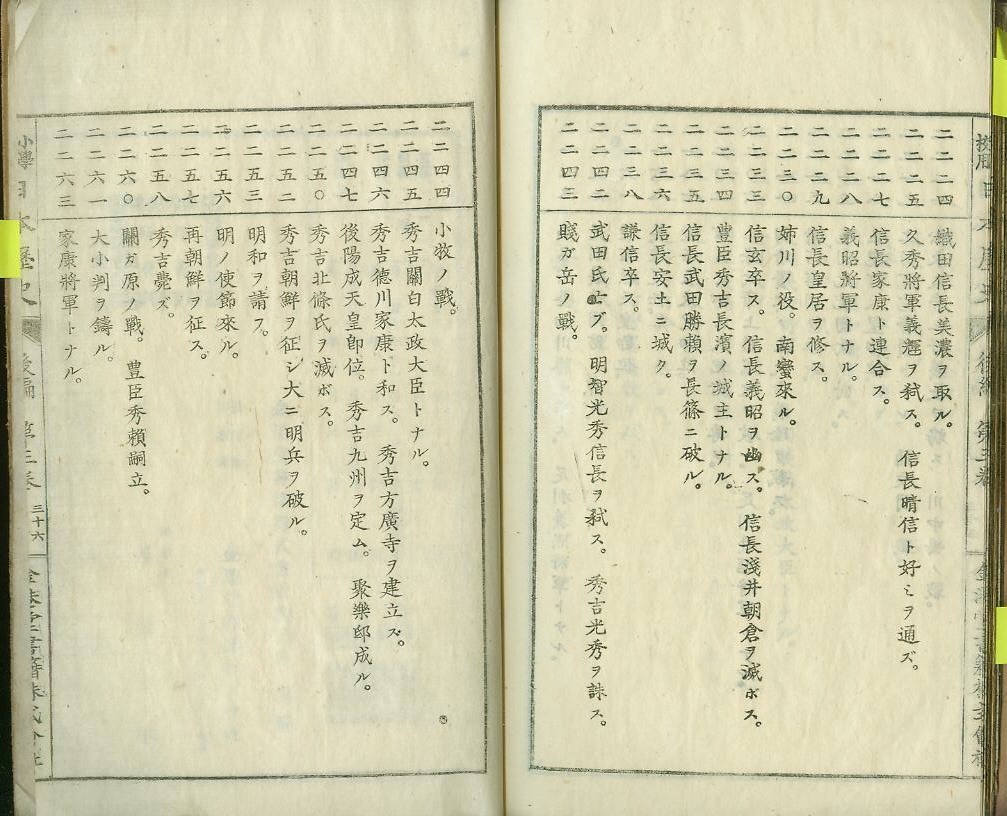 二二二四 織田信長美濃ヲ取ル。
二二二五 久秀將軍義輝ヲ弑ス。 信長晴信ト好ミヲ通ズ。
二二二七 信長家康ト連合ス。
二二二八 義昭將軍トナル。
二二二九 信長皇居ヲ修ス。
二二三〇 姉川ノ役。南蠻來ル。
二二三三 信玄卒ス。 信長義昭ヲ幽ス。 信長淺井朝倉ヲ滅ボス。
二二三四 豐臣秀吉長濱ノ城主トナル。
二二三五 信長武田勝賴ヲ長篠ニ破ル。
二二三六 信長安土ニ城ク。
二二三八 謙信卒ス。
二二四二 武田氏亡ブ。 明智光秀信長ヲ弑ス。 秀吉光秀ヲ誅ス。
二二四三 賤ガ岳ノ戰。
二二四四 小牧ノ戰。
二二四五 秀吉關白太政大臣トナル。
二二四六 秀吉德川家康ト和ス。 秀吉方廣寺ヲ建立ズ。
二二四七 後陽成天皇卽位。 秀吉九州ヲ定ム。 聚樂邸成ル。
二二五〇 秀吉北條氏ヲ滅ボス。
二二五二 秀吉朝鮮ヲ征シ大ニ明兵ヲ破ル。
二二五三 明和ヲ請フ。
二二五六 明ノ使節來ル。
二二五七 再朝鮮ヲ征ス。
二二五八 秀吉薨ズ。
二二六〇 關ガ原ノ戰。 豐臣秀賴嗣立。
二二六一 大小判ヲ鑄ル。
二二六三 家康將軍トナル。
小學日本歷史 後編 第三卷 三十六 金港堂書籍株式會社